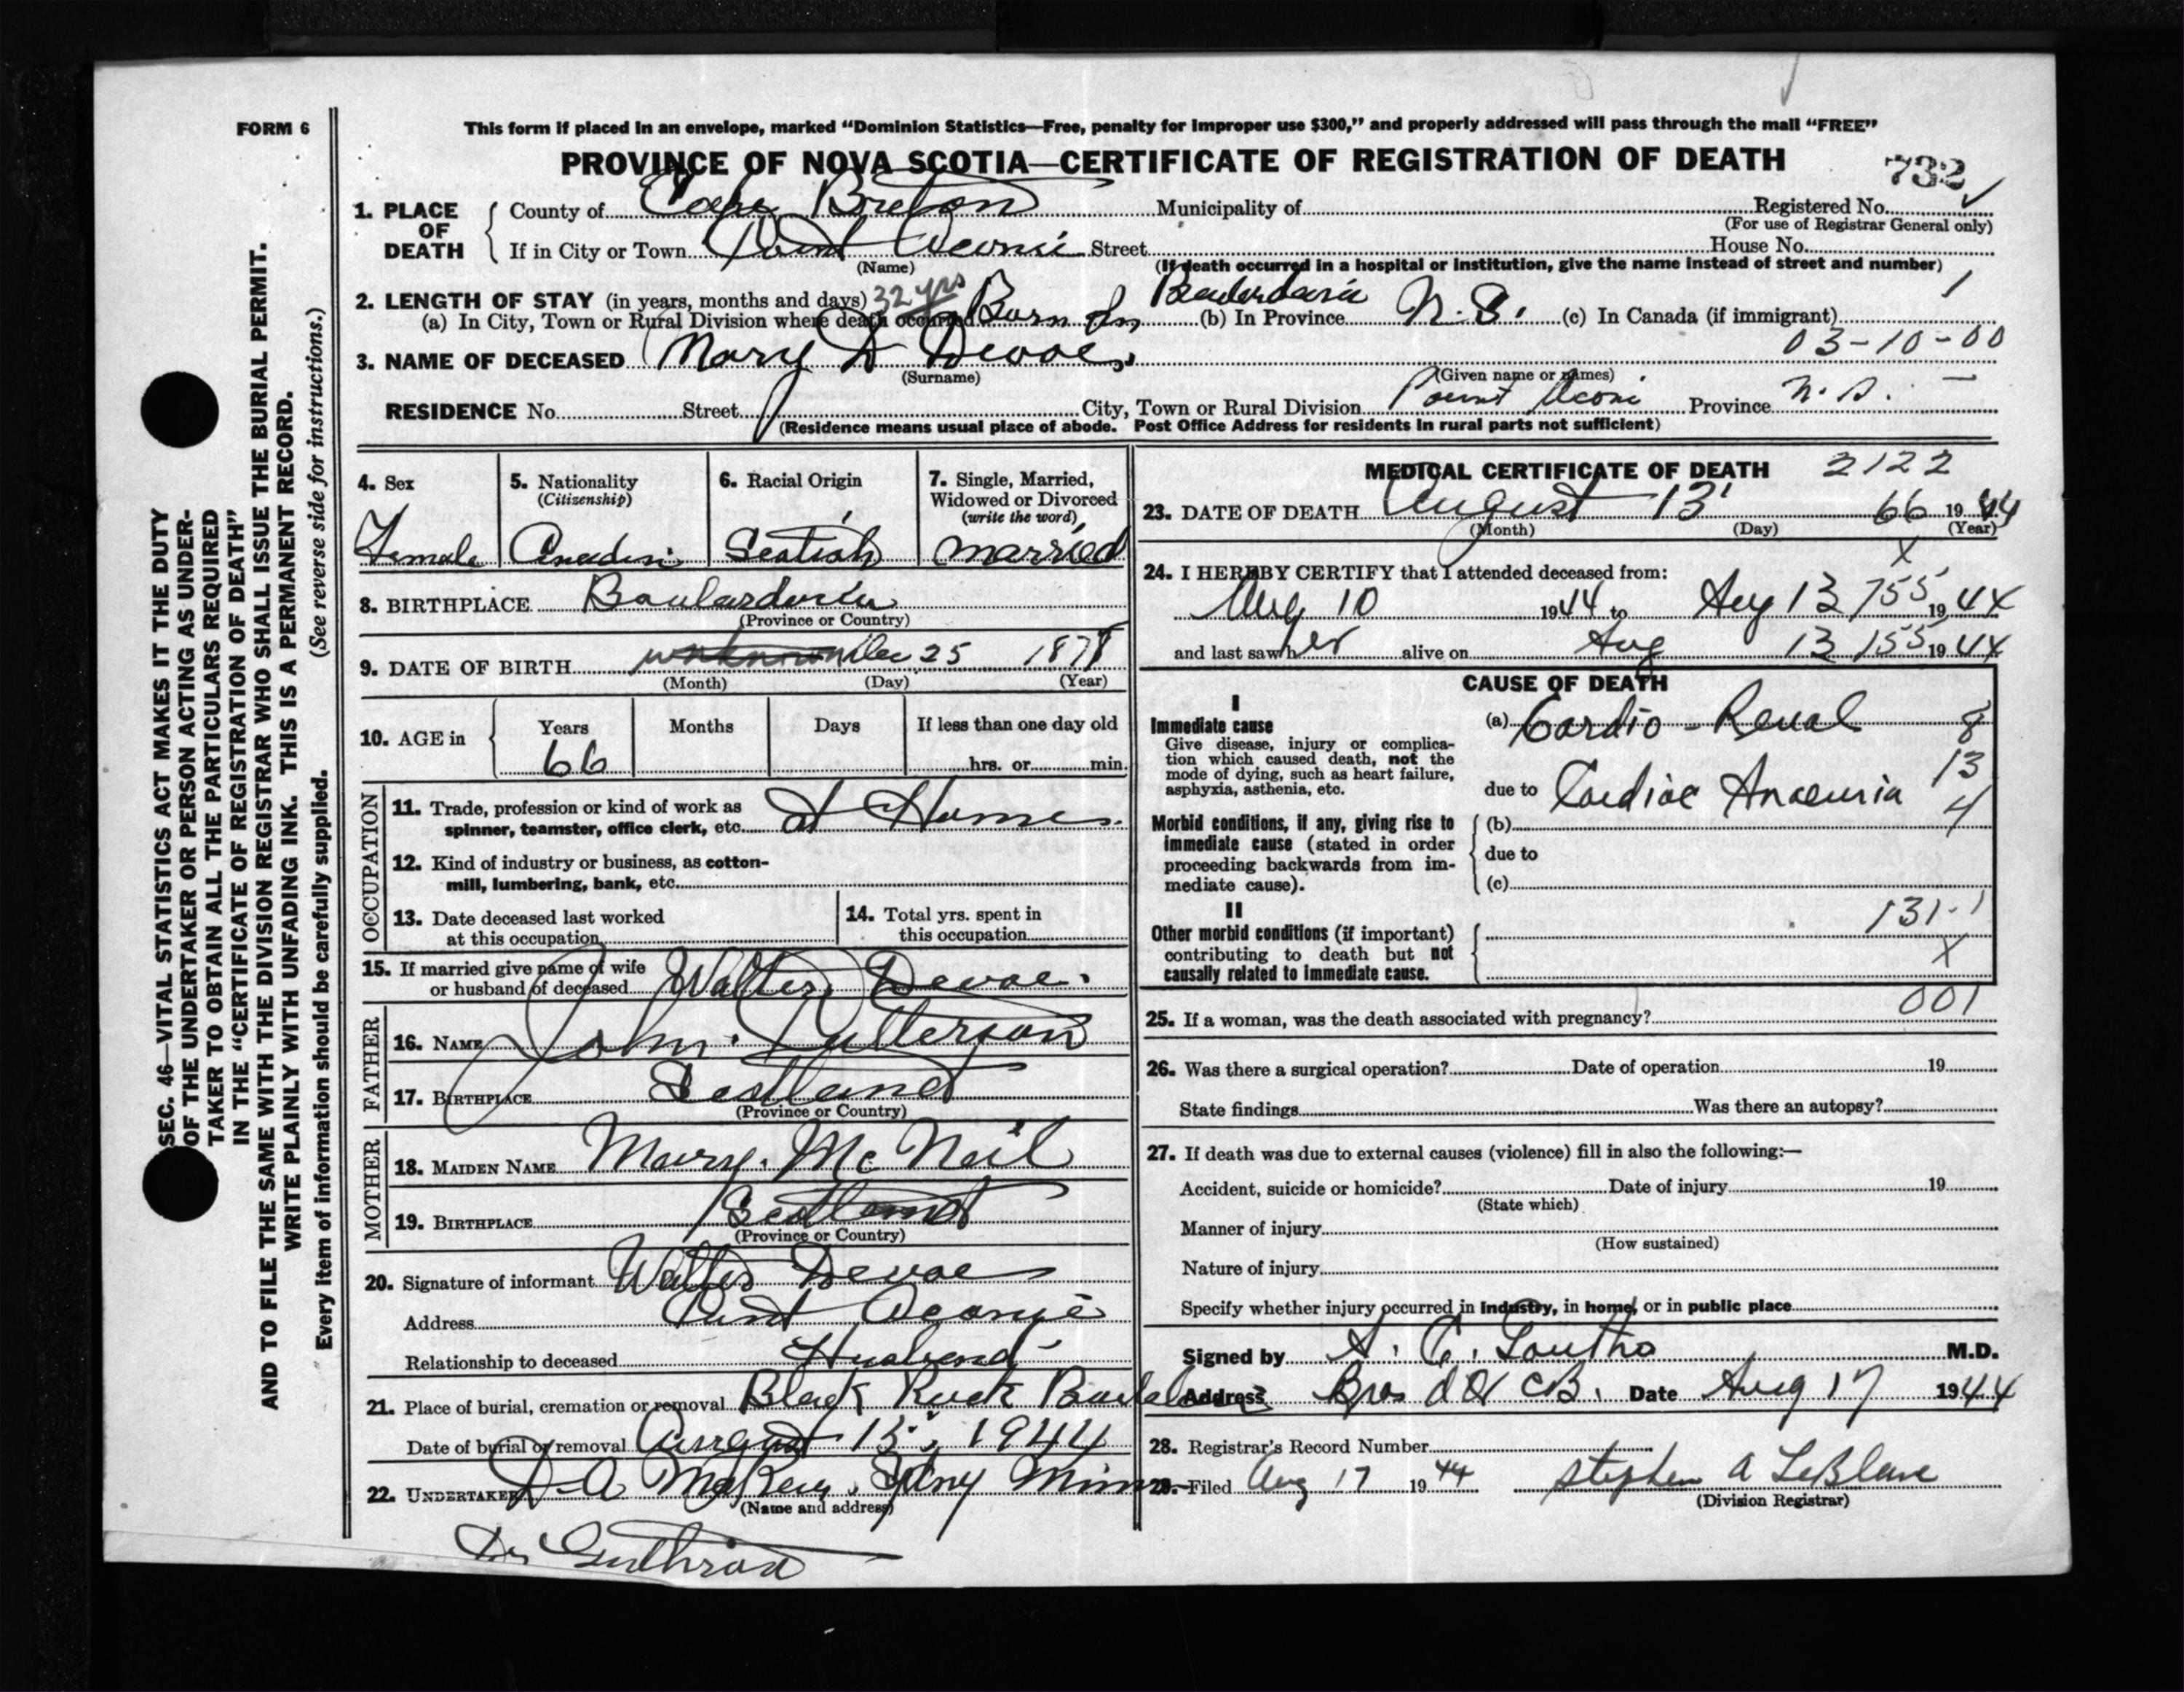 FORM 6
This form if placed in an envelope, marked “Dominion Statistics—Free, penalty for improper use $300,” and properly addressed will pass through the mail “FREE”
PROVINCE OF NOVA SCOTIA—CERTIFICATE OF REGISTRATION OF DEATH
732
1. PLACE OF DEATH
County of Cape Breton Municipality of Registered No.
(For use of Registrar General only)
If in City or Town Point Aconi Street House No.
(Name) (If death occurred in a hospital or institution, give the name instead of street and number)
2. LENGTH OF STAY (in years, months and days) 32 yrs
(a) In City, Town or Rural Division where death occurred Born In (b) In Province N.S. (c) In Canada (if immigrant)
1
03-10-00
3. NAME OF DECEASED Mary D Devoe
(Surname) (Given name or names)
RESIDENCE No. Street City, Town or Rural Division Point Aconi Province N.S.
(Residence means usual place of abode. Post Office Address for residents in rural parts not sufficient)
4. Sex
Female
5. Nationality
(Citizenship)
6. Racial Origin
Scotish
7. Single, Married,
Widowed or Divorced
(write the word)
married
8. BIRTHPLACE
(Province or Country)
9. DATE OF BIRTH unknown Dec 25 1878
(Month) (Day) (Year)
10. AGE in Years Months Days If less than one day old
66 hrs. or min.
OCCUPATION
11. Trade, profession or kind of work as
spinner, teamster, office clerk, etc. At Home
12. Kind of industry or business, as cotton-
mill, lumbering, bank, etc.
13. Date deceased last worked
at this occupation
14. Total yrs. spent in
this occupation
15. If married give name of wife
or husband of deceased Walter Devoe
FATHER
16. NAME John Patterson
17. BIRTHPLACE Scotland
(Province or Country)
MOTHER
18. MAIDEN NAME Mary Mc Neil
19. BIRTHPLACE Scotland
(Province or Country)
20. Signature of informant Walter Devoe
Address Point
Relationship to deceased Husband
21. Place of burial, cremation or removal Black Rock
Date of burial or removal August 15, 1944
22. UNDERTAKER D A Sydney Mines
(Name and address)
MEDICAL CERTIFICATE OF DEATH 2122
23. DATE OF DEATH August 13 66 1944
(Month) (Day) (Year)
x
24. I HEREBY CERTIFY that I attended deceased from:
Aug 10 1944 to Aug 13 1944
and last saw her alive on Aug 13 1944
CAUSE OF DEATH
I
Immediate cause
Give disease, injury or complica-
tion which caused death, not the
mode of dying, such as heart failure,
asphyxia, asthenia, etc.
(a) Cardio-Renal 8
due to 13
4
Morbid conditions, if any, giving rise to
immediate cause (stated in order
proceeding backwards from im-
mediate cause).
(b)
due to
(c)
II
Other morbid conditions (if important)
contributing to death but not
causally related to immediate cause.
131-1
X
001
25. If a woman, was the death associated with pregnancy?
26. Was there a surgical operation? Date of operation 19
State findings Was there an autopsy?
27. If death was due to external causes (violence) fill in also the following:—
Accident, suicide or homicide? Date of injury 19
(State which)
Manner of injury
(How sustained)
Nature of injury
Specify whether injury occurred in industry, in home, or in public place
Signed by M.D.
Address Date Aug 17 1944
28. Registrar's Record Number
29. Filed Aug 17 1944 Stephen A LeBlanc
(Division Registrar)
SEC. 46—VITAL STATISTICS ACT MAKES IT THE DUTY
OF THE UNDERTAKER OR PERSON ACTING AS UNDER-
TAKER TO OBTAIN ALL THE PARTICULARS REQUIRED
IN THE “CERTIFICATE OF REGISTRATION OF DEATH”
AND TO FILE THE SAME WITH THE DIVISION REGISTRAR WHO SHALL ISSUE THE BURIAL PERMIT.
WRITE PLAINLY WITH UNFADING INK. THIS IS A PERMANENT RECORD.
Every item of information should be carefully supplied. (See reverse side for instructions.)